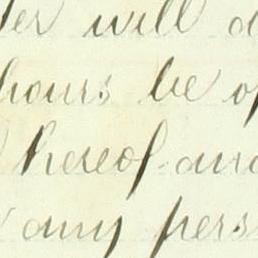 will
hours be
hereof and
any pers